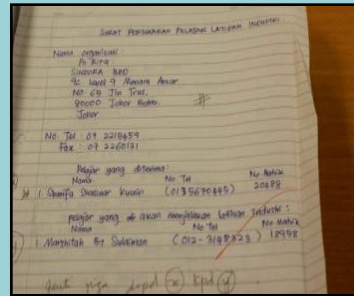 SURAT PERTUKARAN PELAJAR LATIHAN INDUSTRI
Nama organisasi
Pn. Rita
SINDORA BHD
9c Level 9 Menara Ansar
NO 65 Jln Trus,
80000 Johor Bahru.
Johor
#
No Tel : 07 2215459
Fax : 07 2260131
Pelajar yang diterima :
Nama. No Tel No Matrik
# 1 (0135670495) 20488
pelajar yang akan menjalankan latihan Industri :
Nama No Tel No Matrik
1 Marthitah Bt Sulaiman (012-3148323) 18958
ganti juga drpd (x) kpd (y)